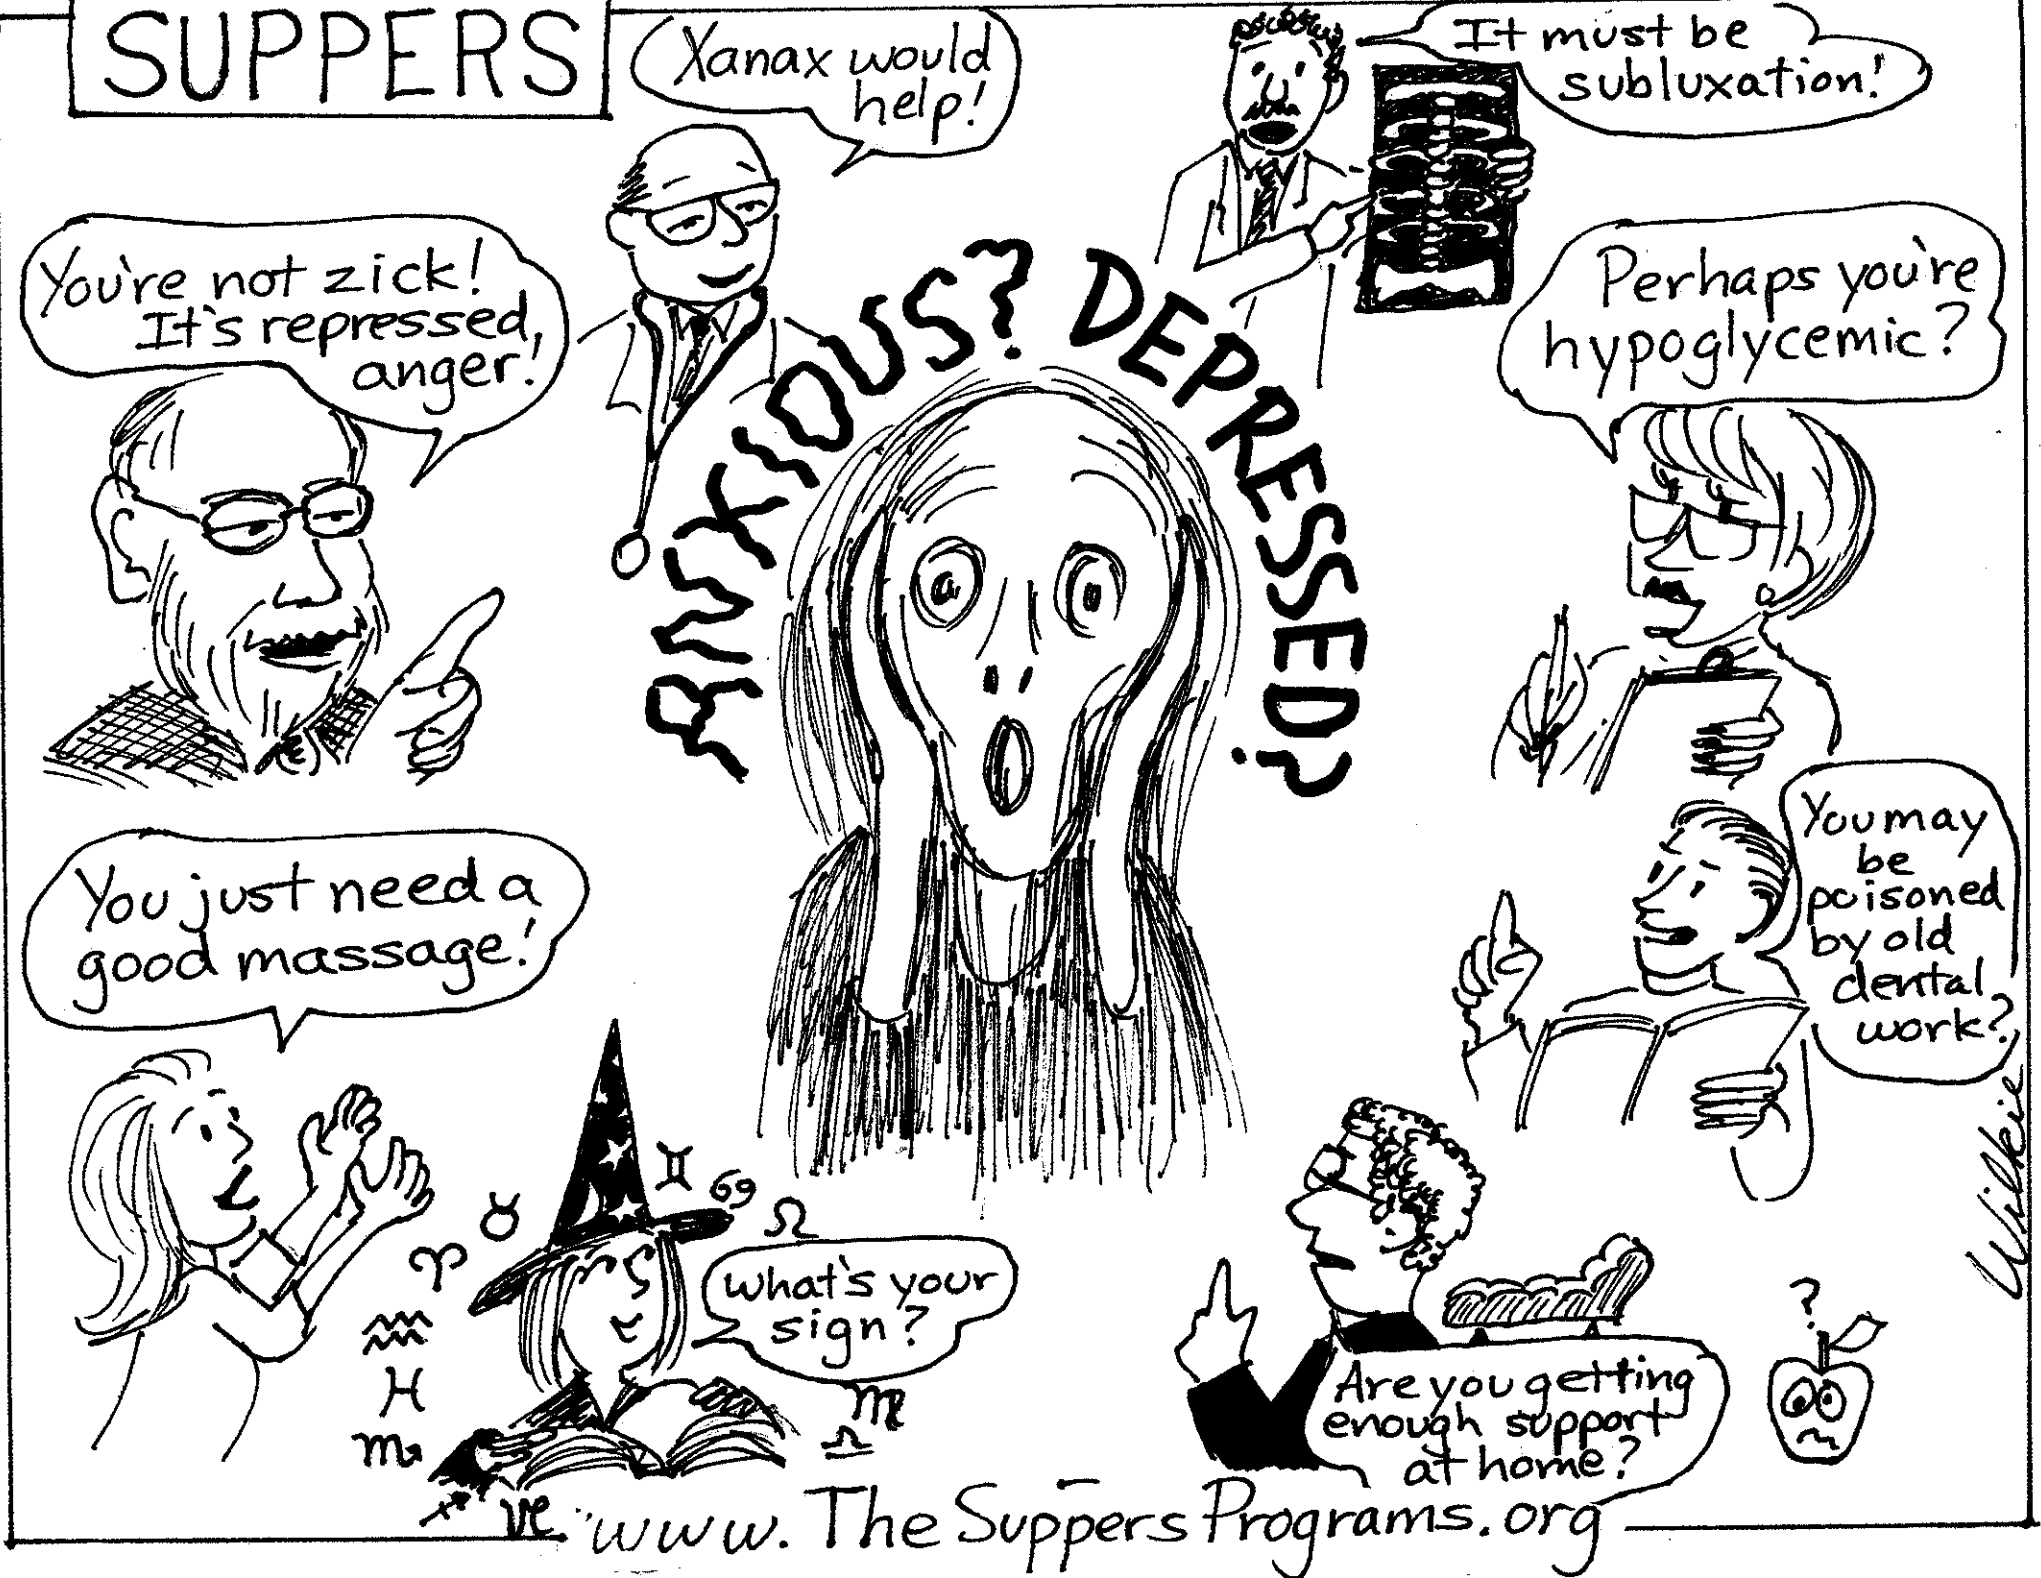 SUPPERS
Xanax would
help!
It must be
subluxation!
You're not zick!
It's repressed,
anger!
ANXIOUS? DEPRESSED?
Perhaps you're
hypoglycemic?
You may
be
poisoned
by old
dental
work?
You just need a
good massage!
What's your
sign?
Are you getting
enough support
at home?
?
Wilkie
www.TheSuppersPrograms.org